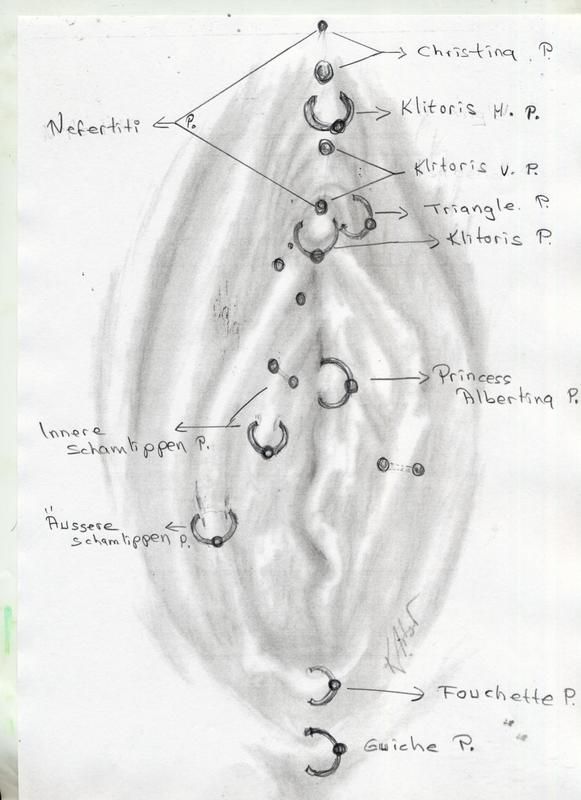 Christina P.
Klitoris H. P.
Nefertiti P.
Klitoris V. P.
Triangle. P.
Klitoris P.
Princess
Albertina P.
Innere
Schamlippen P.
Äussere
Schamlippen P.
Fouchette P.
Guiche P.